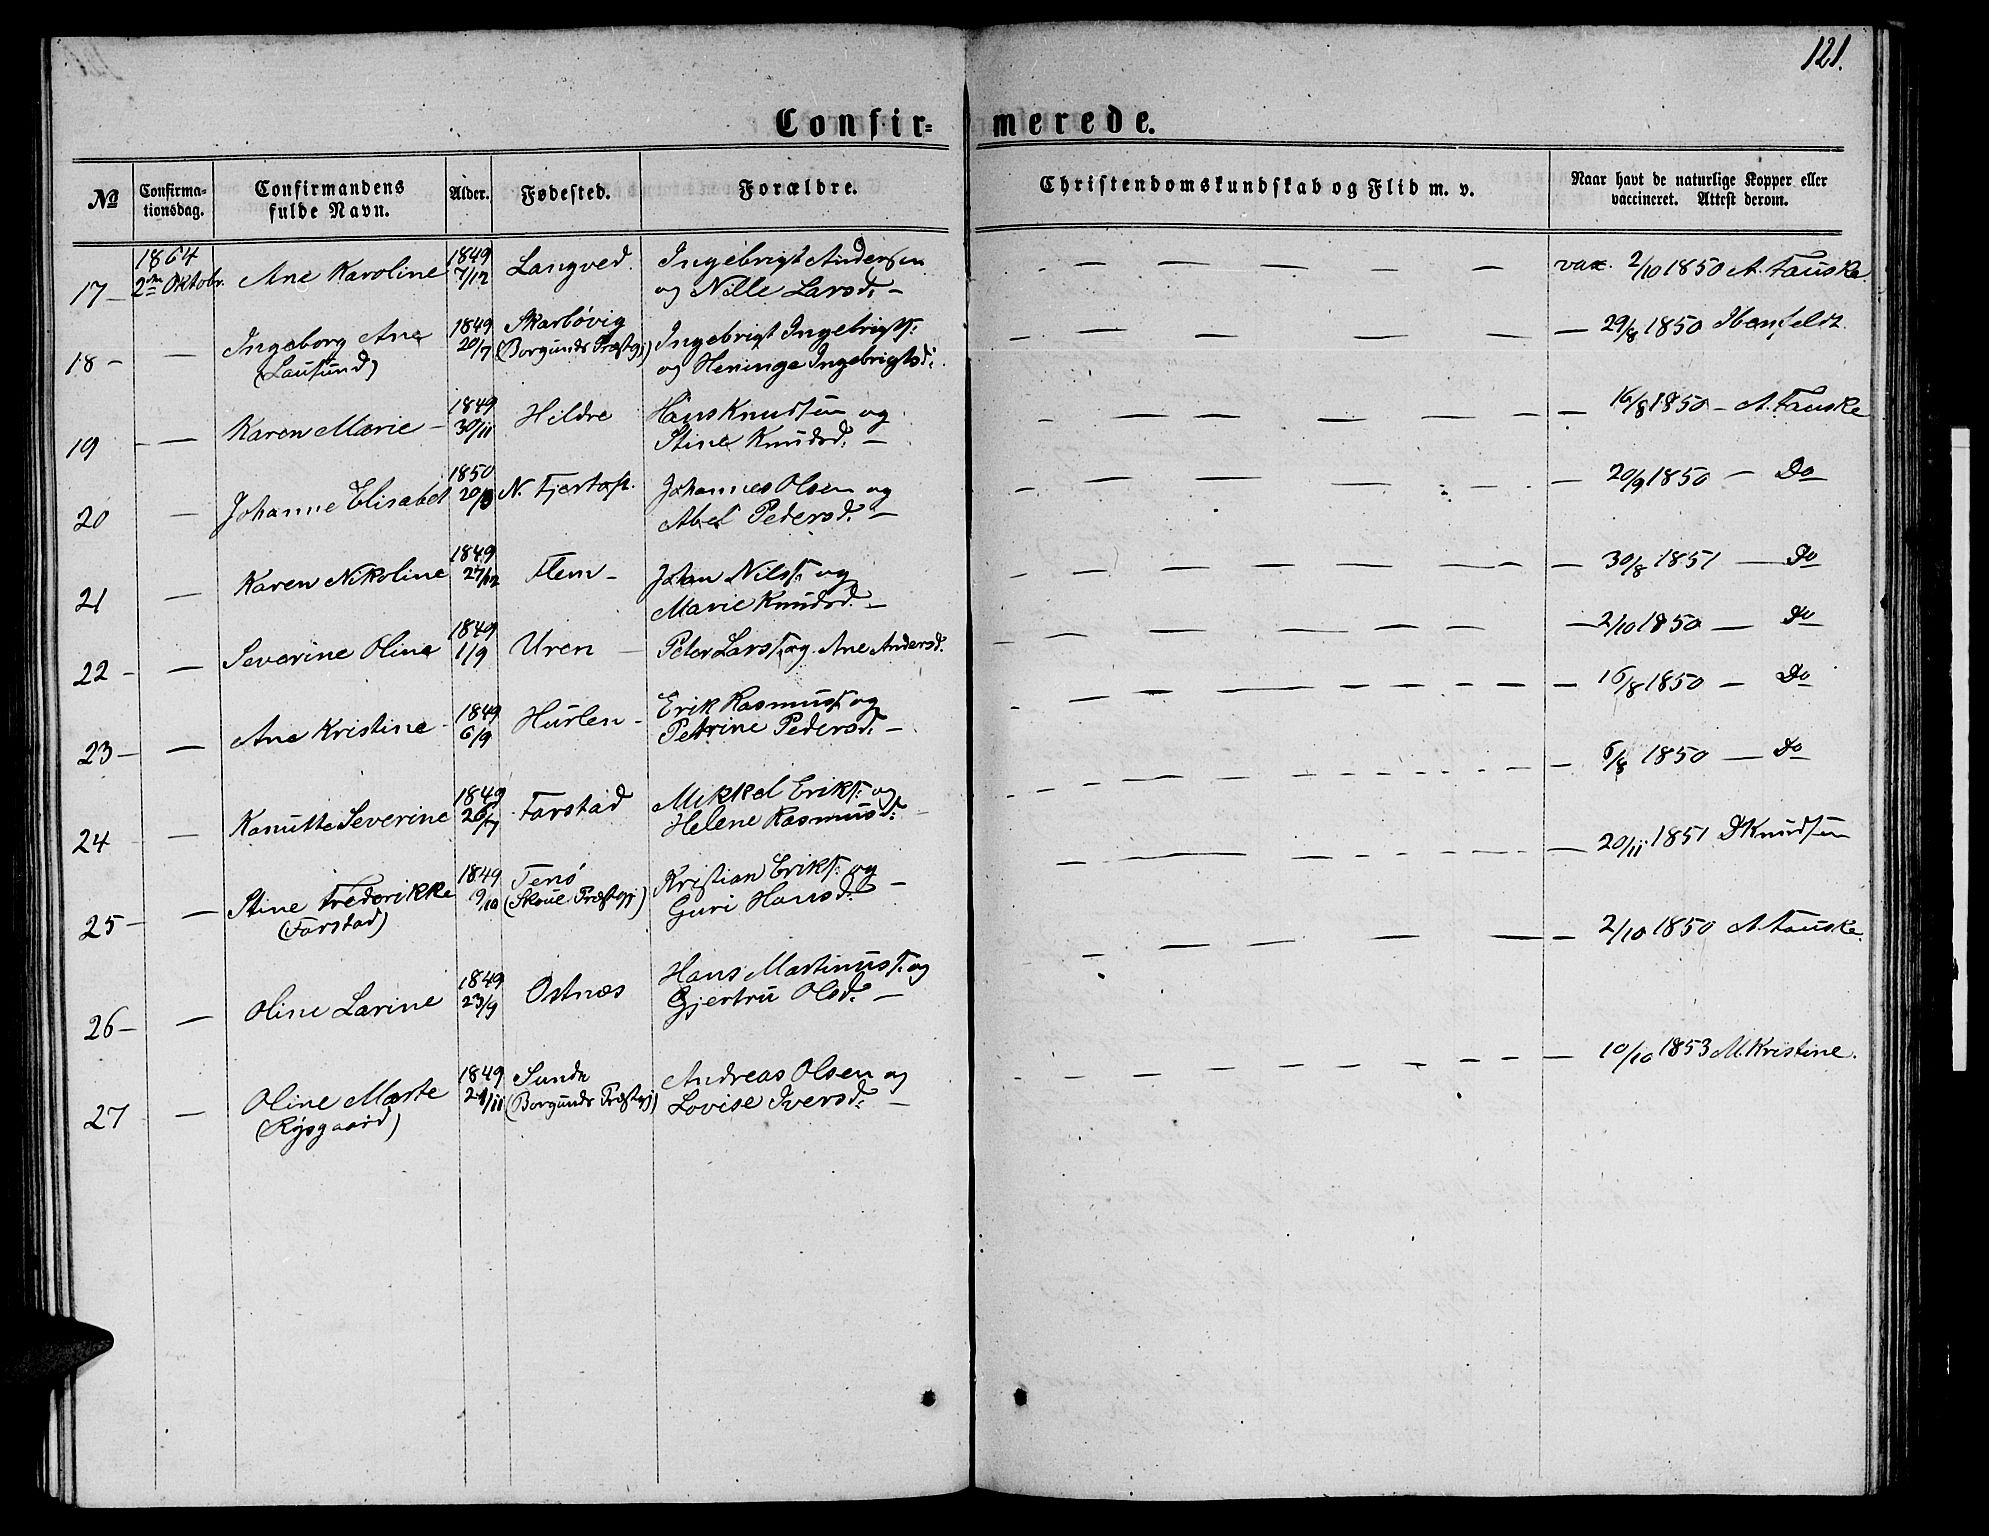 121.
Confir= merede.
No
Confirma-
tionsdag.
Confirmandens
fulde Navn.
Alder.
Fødested.
Forældre.
Christendomskundskab og Flid m. v.
Naar havt de naturlige Kopper eller
vaccineret. Attest derom.
1864
17 - 2den Oktobr. Ane Karoline 1849 7/12 Langved. Ingebrigt Andersen
og Nille Larsd. - vax. 2/10 1850 A. Fauske.
18 - — Ingeborg Ane 1849 20/7 Skarbövig Ingebrigt Ingebrigts.
(Lausund) (Borgunds Præstgj) og Heninge Ingebrigtsd. — 29/8 1850
19 - — Karen Marie - 1849 30/11 Hildre Hans Knudsen og
Stine Knudsd. — 16/8 1850 - A. Fauske
20 — Johanne Elisabet 1850 N. Fjertoft. Johannes Olsen og
Abel Pedersd. — 20/9 1850 — Do
21 — Karen Nikoline 1849 27/12 Flem - Johan Nils. og
Marie Knudsd. — 30/8 1851 — Do
22 - — Severine Oline 1849 1/9 Uren — Peter Lars. og Ane Andersd. — 2/10 1850 — Do
23 - — Ane Kristine - 1849 6/9 Hurlen - Erik Rasmus. og
Petrine Pedersd. — 16/8 1850 — Do
24 — Kanutte Severine 1849 26/7 Farstad Mikkel Eriks. og
Helene Rasmusd. — 6/8 1850 — Do
25 - — Stine Frederikke 1849 9/10 Tenö Kristian Eriks. og
(Farstad) (Skoue Præstgj) Guri Hansd. — 20/11 1851 D Knudsen
26 - — Oline Larine 1849 23/9 Ostnæs Hans Martinus. og
Gjertru Olsd. — 2/10 1850 A. Fauske.
27 — Oline Marte 1849 Sunde Andreas Olsen og
(Rysgaard) (Borgunds Præstgj) Lovise Iversd. — 10/10 1853 M. Kristine.